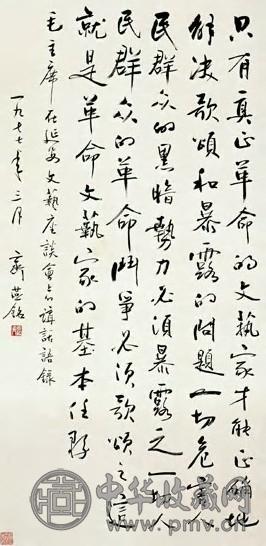 只有真正革命的文艺家才能正确地
解决歌颂和暴露的问题一切危害人
民群众的黑暗势力必须暴露之一切人
民群众的革命鬥争必须歌颂之这
就是革命文艺家的基本任务
毛主席在延安文艺座谈会上的讲话语录
一九七七年三月
中华收藏网
www.pmv.cn